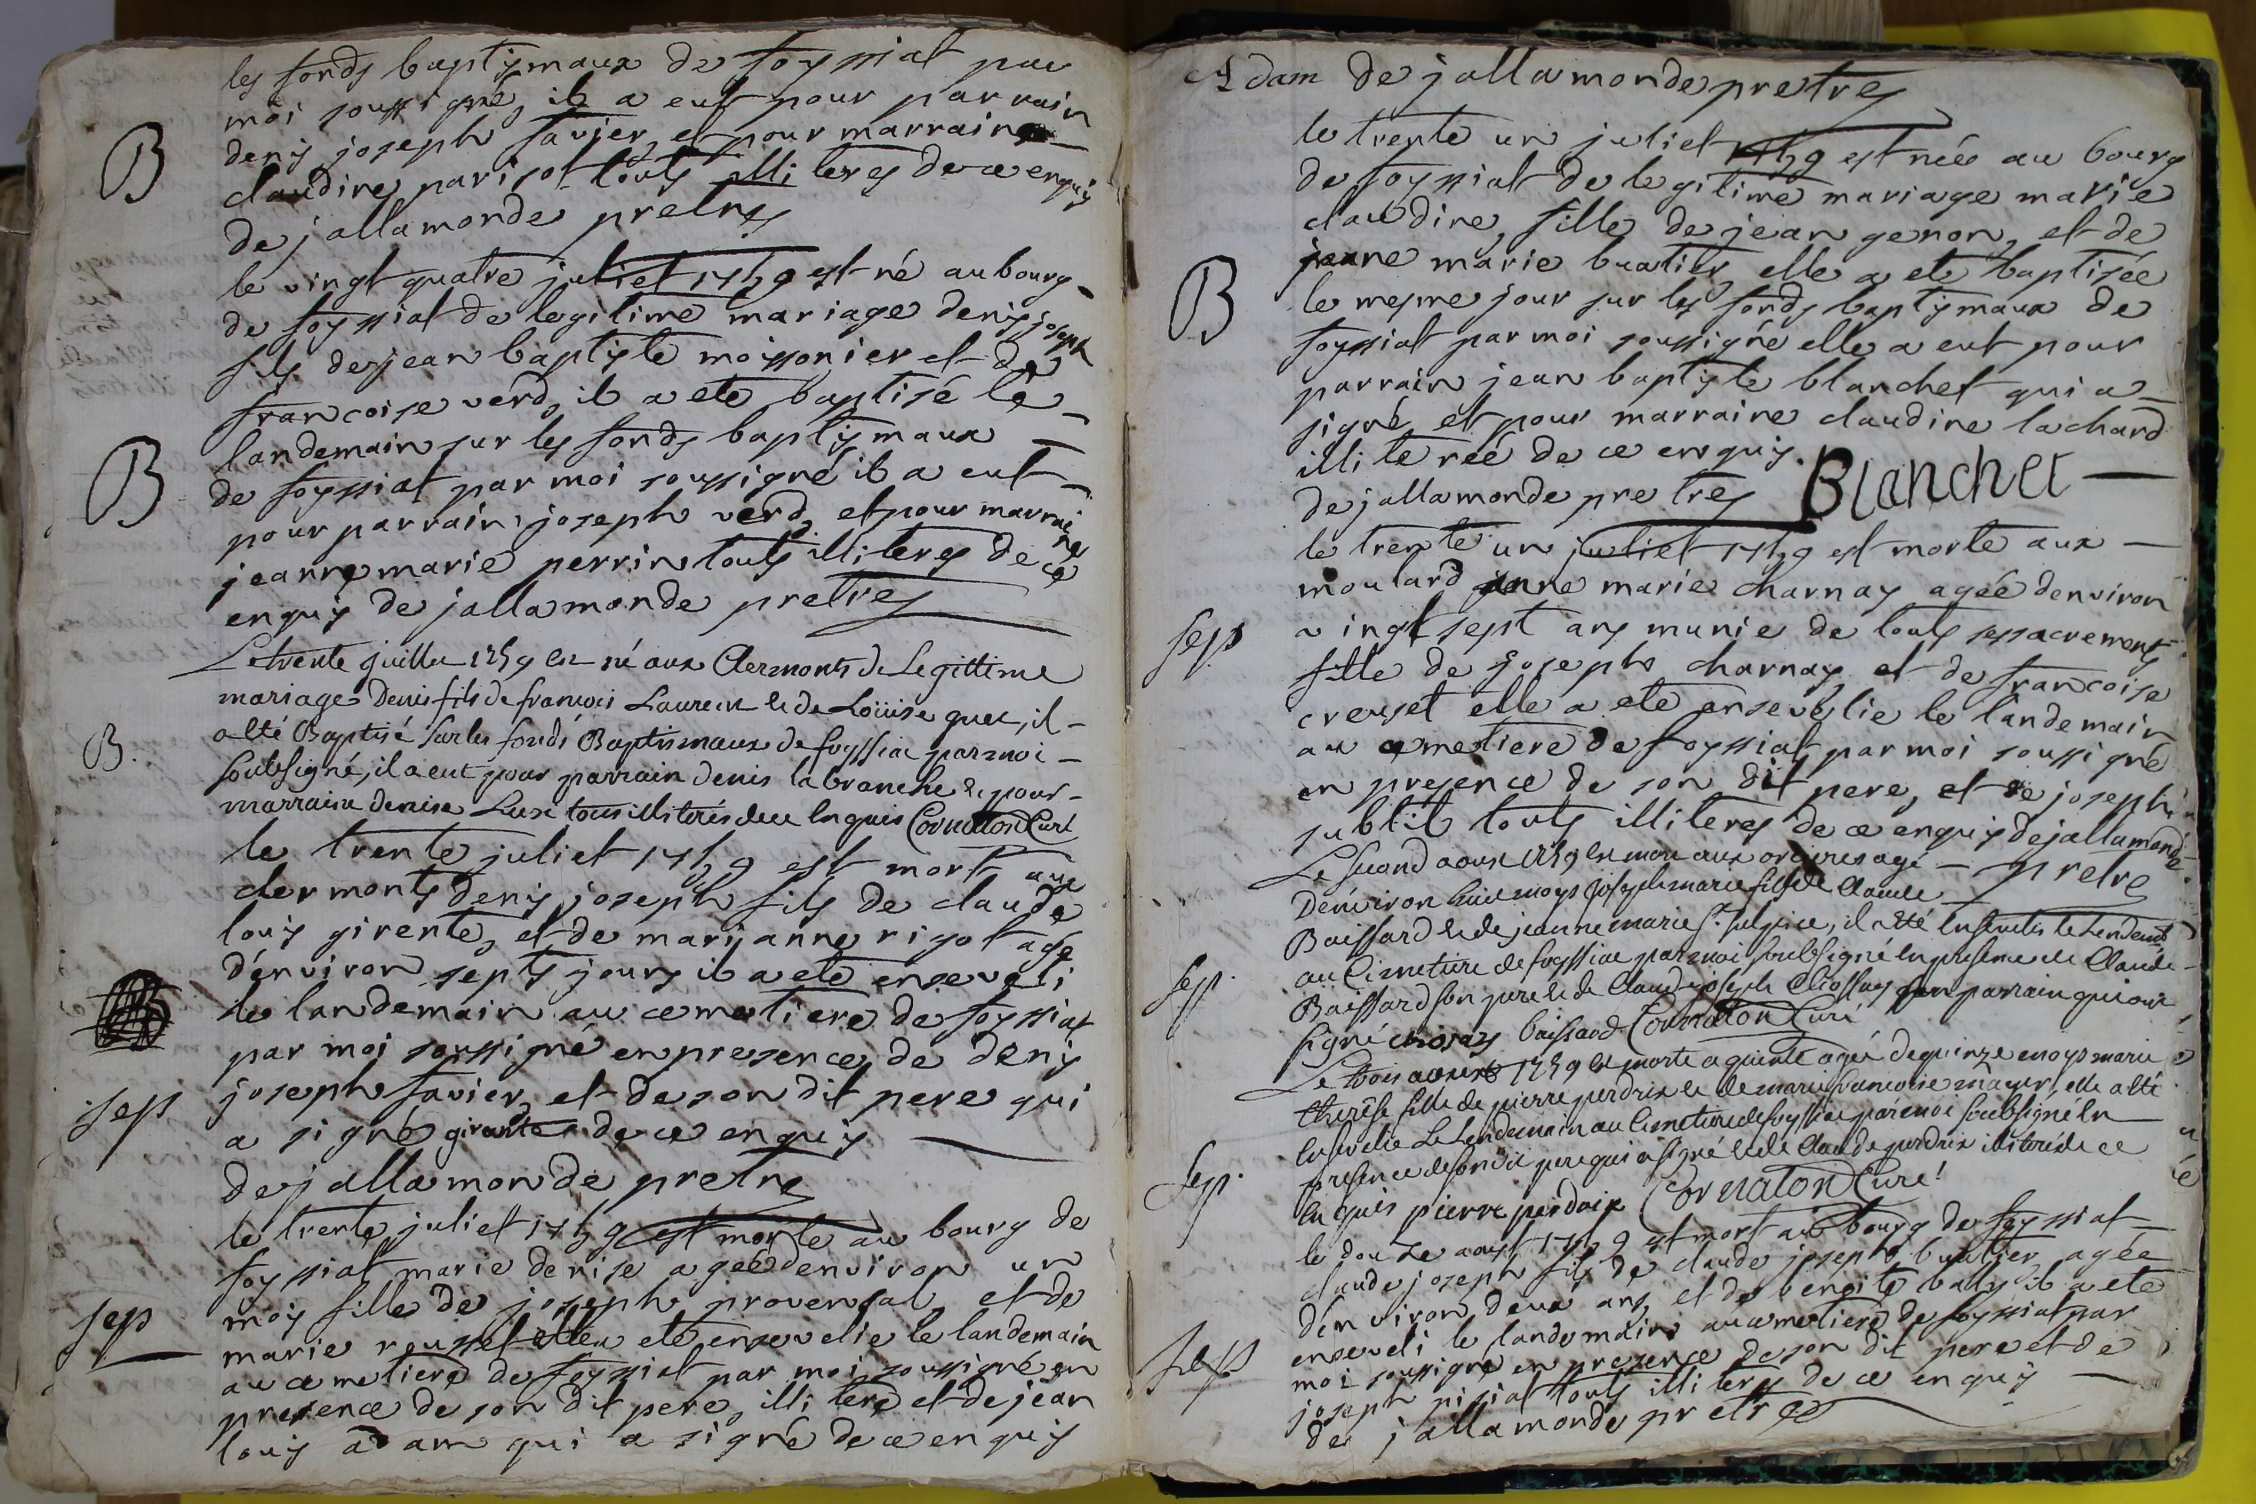 les fonds baptismaux de foyssiat par
moi soussigné, il a eut pour parrain
B
denis joseph favier, et pour marraine
claudine parisot touts illiteres de ce enquis
de jallamonde pretre
le vingt quatre juliet 1759 est né au bourg
de foyssiat de legitime mariage denis joseph
fils de jean baptiste moissonier et de
francoise verd, il a ete baptisé le
landemain sur les fonds baptismaux
B
de foyssiat par moi soussigné il a eut
pour parrain joseph verd, et pour marraine
jeanne marie perrin touts illiteres de ce
enquis de jallamonde pretre
Le trente juillet 1759 est né aux Clermonts de Legittime
mariage Denis fils de francois Laurent et de Loüise guet, il
a eté Baptisé sur les fonds Baptismaux de foyssiat par moi
B.
soubsigné, il a eut pour parrain denis la branche et pour
marraine denise Luxe tous illiterés de ce enquis Cornaton Curé
le trente juliet 1759 est mort aux
clermonts denis joseph fils de claude
louis girente, et de marianne rigot agé
d'environ sept jours il a ete enseveli
le landemain au cemetiere de foyssiat
par moi soussigné en presence de denis
sep
joseph favier, et de son dit pere qui
a signé girante de ce enquis
de jallamonde pretre
le trente juliet 1759 est morte au bourg de
foyssiat marie denise ageé denviron un
sep
mois fille de joseph provensal, et de
marie rousset elle a ete ensevelie le landemain
au cemetiere de foyssiat par moi soussigné en
presence de son dit pere, illitere et de jean
louis adam qui a signé de ce enquis
Adam de jallamonde pretre
le trente un juliet 1759 est neé au bourg
de foyssiat de legitime mariage marie
claudine, fille de jean genon, et de
jeanne marie buatier, elle a ete baptisée
B
le mesme jour sur les fonds baptismaux de
foyssiat par moi soussigné elle a eut pour
parrain jean baptiste blanchet qui a
signé et pour marraine claudine lachard
illitereé de ce enquis.
de jallamonde pretre Blanchet
le trente un juliet 1759 est morte aux
moulard janne marie charnay agée denviron
sep
vingt sept ans munie de touts ses sacrements
fille de joseph charnay et de francoise
creuset elle a ete ensevelie le landemain
au cemetiere de foyssiat par moi soussigné
en presence de son dit pere, et de joseph
subtil touts illiteres de ce enquis de jallamonde
pretre
Le second aoust 1759 est mort aux orcieres agé
Denviron huit moys joseph marie fils de Claude
Baissard et de jeanne marie St. Sulpice, il a eté enseveli le Lendemain
sep.
au Cimetiere de foyssiat par moi soubsigné en presence de Claude
Baissard son père et de Claude joseph Chossay son parrain qui ont
signé chosay baissard Cornaton Curé
Le trois aoust 1759 est morte a agée de quinze moys marie
therêse fille de pierre perdrix et de marie francoise mayer, elle a eté
ensevelie Le Lendemain au Cimetiere de foyssiat par moi soubsigné en
sep.
presence de son dit pere qui a signé et de Claude perdrix illiteré de ce
enquis pierre perdrix Cornaton Curé
le douze aoust 1759 est mort au bourg de foyssiat
claude joseph fils de claude joseph buatier agée
d'environ deux ans, et de benoite il a ete
sep
enseveli le landemain au cemetiere de foyssiat par
moi soussigné en presence de son dit pere et de
joseph touts illiteres de ce enquis
de jallamonde pretre